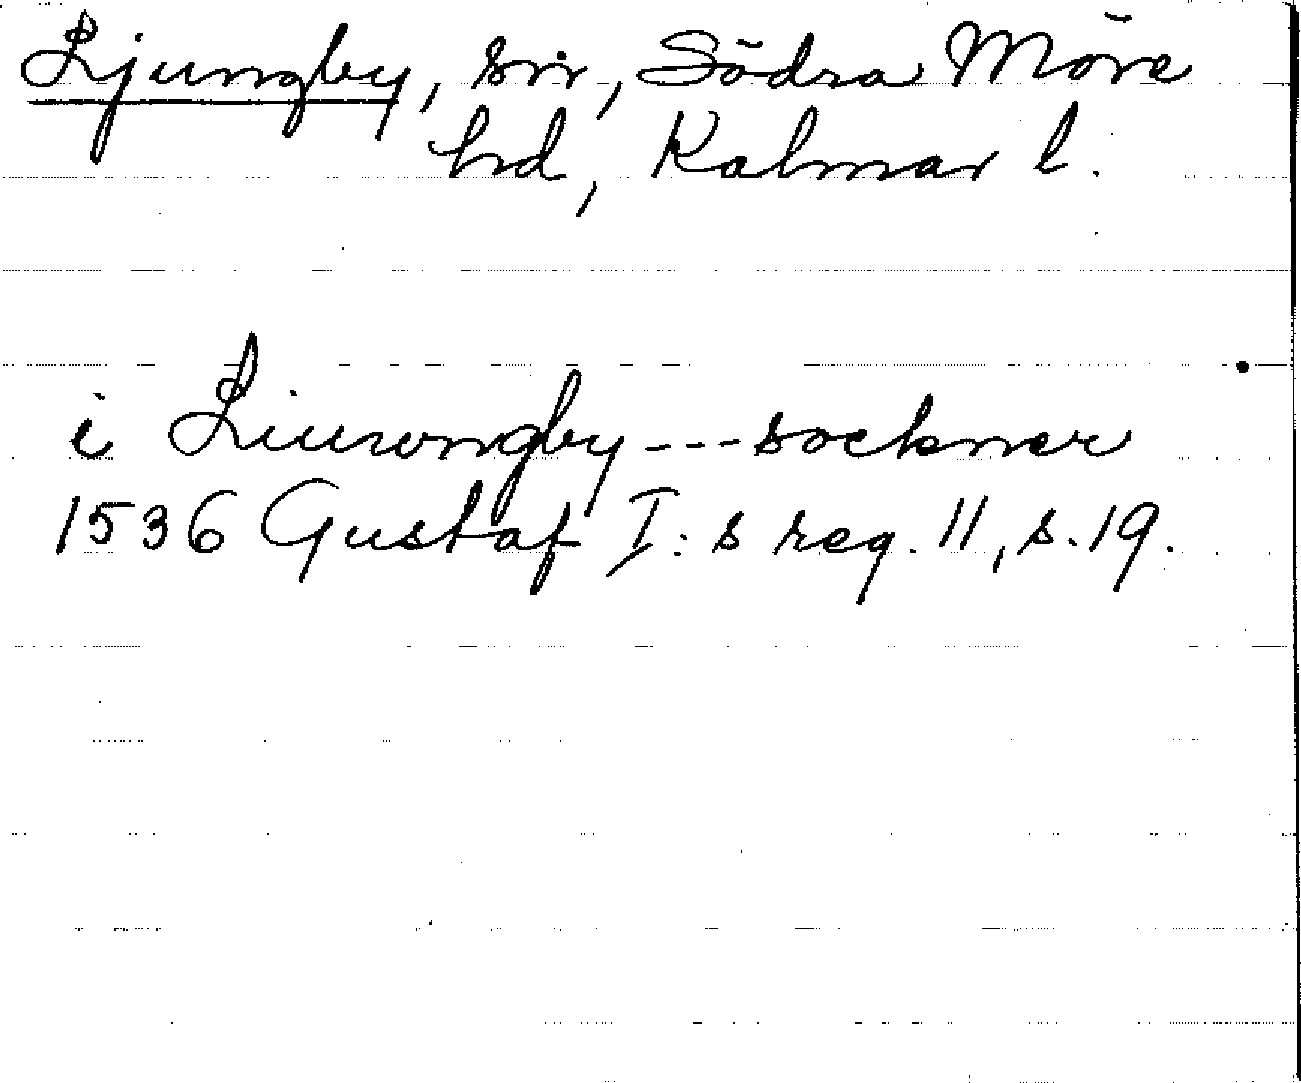 Ljungby, sn, Södra Möre
hd, Kalmar l.
i Liurongby --- sockner
1536 Gustaf I:s reg. 11, s. 19.